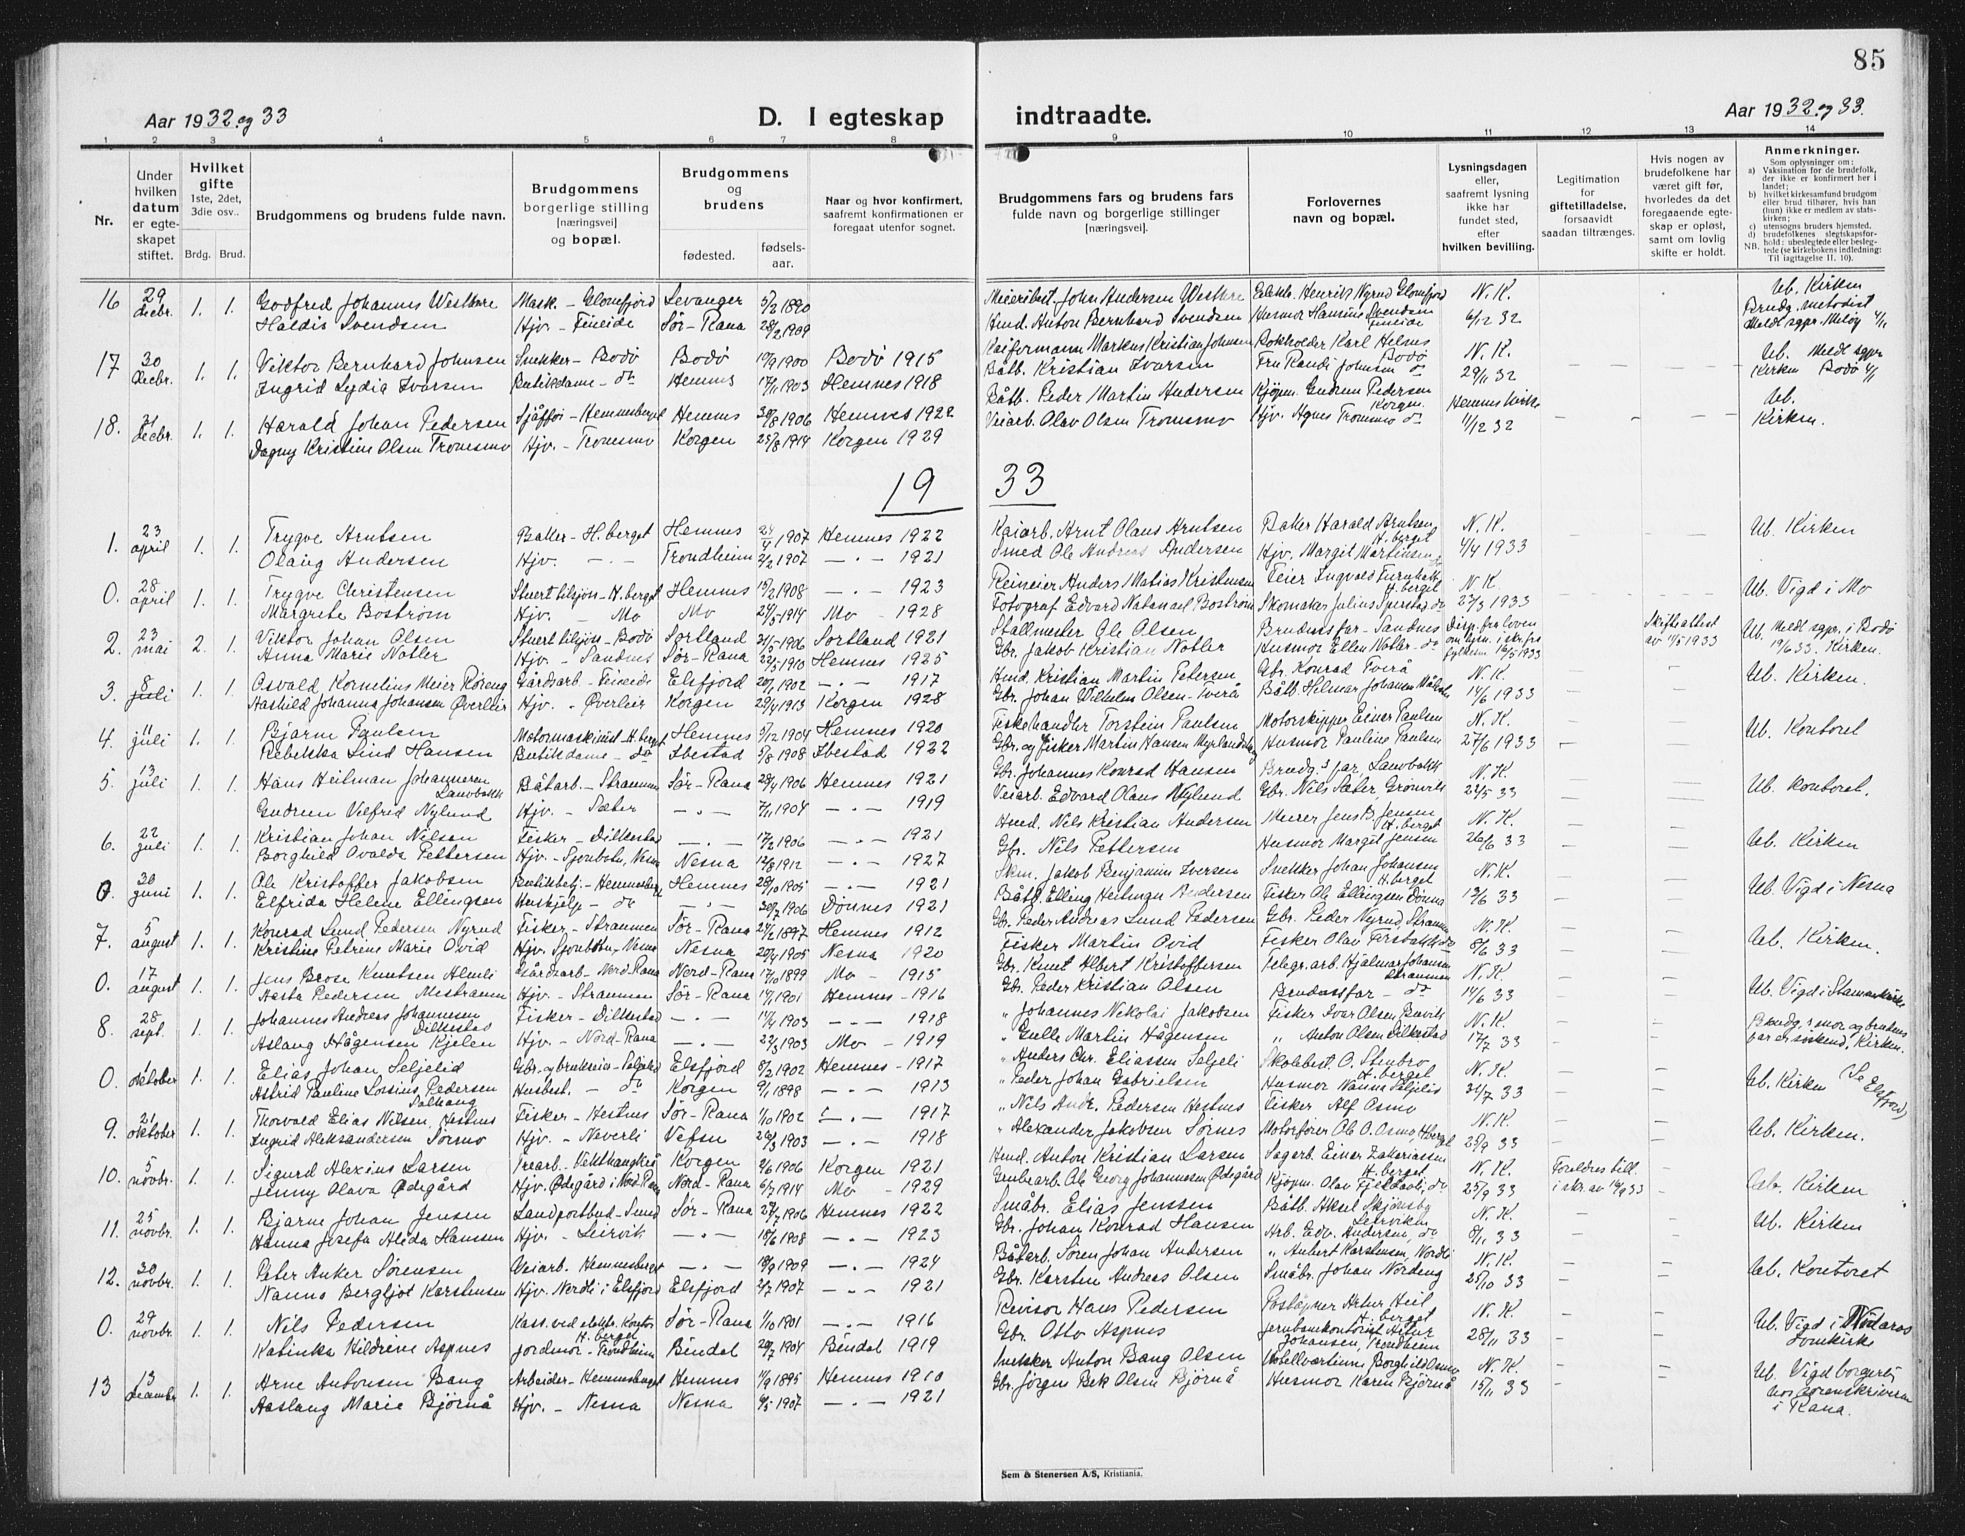 85
Aar 1932 og 33
D. I egteskap
indtraadte.
Aar 1932 og 33.
1 2 3 4 5 6 7 8 9 10 11 12 13 14
Nr.
Under hvilken datum er egteskapet stiftet.
Hvilket gifte 1ste, 2det, 3die osv..
Brdg. Brud.
Brudgommens og brudens fulde navn.
Brudgommens borgerlige stilling [næringsvei] og bopæl.
Brudgommens og brudens
fødested.
fødselsaar.
Naar og hvor konfirmert, saafremt konfirmationen er foregaat utenfor sognet.
Brudgommens fars og brudens fars fulde navn og borgerlige stillinger [næringsvei].
Forlovernes navn og bopæl.
Lysningsdagen eller, saafremt lysning ikke har fundet sted, efter hvilken bevilling.
Legitimation for giftetilladelse, forsaavidt saadan tiltrænges.
Hvis nogen av brudefolkene har været gift før, hvorledes da det foregaaende egteskap er opløst, samt om lovlig skifte er holdt.
Anmerkninger.
Som oplysninger om:
a) Vaksination for de brudefolk, der ikke er konfirmert her i landet;
b) hvilket kirkesamfund brudgom eller brud tilhører, hvis han (hun) ikke er medlem av statskirken;
c) utensogns bruders hjemsted.
d) brudefolkenes slegtskapsforhold: ubeslegtede eller beslegtede (se kirkebokens indledning:
NB. Til iagttagelse II, 10).
16 29 decbr. 1. 1. Godfred Johannes Westbere Mask. - Glomfjord Levanger 5/2 1890 Meieribest. John Andersen Westbere Elektr. Henrik Nyrud Glomfjord N. K. Ub. Kirken
Haldis Svendsen Hjv. - Fineide Sør-Rana 28/2 1909 Hmd. Anton Bernhard Svendsen Husmor Hansine Svendsen Fineide 6/12 32 Brudg. metodist Meldt sgpr. Meløy 4/1
17 30 decbr. 1. 1. Viktor Bernhard Johnsen Snekker - Bodø Bodø 10/9 1900 Bodø 1915 Kaiformann Markus Kristian Johnsen Rokholder Karl Helms Bodø N. K. Ub. Meldt sgpr
Ingrid Lydia Ivarsen Butikdame - do Hemnes 17/11 1903 Hemnes 1918 Båtb. Kristian Ivarsen Fru Randi Johnsen do 29/11 32 Kirken Bodø 4/1
18. 31 decbr. 1. 1. Harald Johan Pedersen Sjåffør - Hemnesberget Hemnes 30/8 1906 Hemnes 1922 Båtb. Peder Martin Andersen Kjøpm. Gudrun Pedersen Korgen Hemnes kirke Ub.
Dagny Kristine Olsen Tronesmo Hjv. - Tronesmo Korgen 25/8 1914 Korgen 1929 Veiarb. Olav Olsen Tronesmo Hjv. Agnes Tronesmo do 11/12 32 Kirken.
19 33
1. 23 april 1. 1. Trygve Arntsen Baker - H.berget Hemnes 24/4 1907 Hemnes 1922 Kaiarb. Arnt Olaus Arntsen Baker Harald Arntsen H.berget N. K. Ub. Kirken
Olaug Andersen Hjv. - - - Trondheim 2/2 1907 - " - 1921 Smed Ole Andreas Andersen Hjv. Margit Martinsen 4/4 1933
0. 28 april 1. 1. Trygve Christensen Stuert tilsjøs - H.berget Hemnes 15/2 1908 - " - 1923 Reineier Anders Matias Kristensen Feier Ingvald H.berget N. K. Ub. Vigd i Mo
Margrete Bostrøm Hjv. - Mo Mo 24/5 1914 Mo - 1928 Fotograf Edvard Natanael Bostrøm Skomaker Julius do 23/3 1933
2. 23 mai 2. 1. Viktor Johan Olsen Stuert tilsjøs - Bodø Sortland 31/5 1906 Sortland 1921 Stallmester Ole Olsen Brudens far - Sandnes Disp. fra loven Skifteattest Ub. Meldt sgpr. i Bodø
Anna Marie Nobler Hjv. - Sandnes Sør-Rana 22/5 1910 Hemnes 1925 Gbr. Jakob Kristian Nobler Husmor Ellen Nobler - do av 11/5 1933 19/6 33. Kirken.
3. 8 juli 1. 1. Osvald Kornelius Meier Røreng Gårdsarb - Fineide Elsfjord 20/1 1902 - " - 1917 Hmd. Kristian Martin Petersen Gbr. Konrad Tverå N. K. Ub. Kirken.
Aashild Johanna Johansen Øverleir Hjv. - Øverleir Korgen 29/4 1913 Korgen 1928 Gbr. Johan Wilhelm Olsen - Tverå Båtb. Helmar Johansen 14/6 1933
4. 11 juli 1. 1. Bjarne Paulsen Motormaskinist H.berget Hemnes 5/12 1904 Hemnes 1920 Fiskehandler Torstein Paulsen Motorskipper Einar Paulsen N. K. Ub. Kontoret
Rebekka Lind Hansen Butikdame - do Ibestad 5/8 1908 Ibestad 1922 Gbr. og fisker Martin Hansen Husmor Pauline Paulsen 27/6 1933
5. 13 juli 1. 1. Hans Heilman Johannesen Lanvbakk Båtarb. - Straumen Sør-Rana 28/4 1906 Hemnes 1921 Gbr. Johannes Konrad Hansen Brudg.s far, N. K. Ub. kontoret.
Gudrun Velfrid Nylund Hjv. - Sæter - " - 7/11 1904 - " - 1919 Veiarb. Edvard Olaus Nylund Gbr. Nils Sæter, 24/5 33
6. 22 juli 1. 1. Kristian Johan Nilsen Fisker - Dilkestad 17/2 1906 - " - 1921 Hmd. Nils Kristian Andersen Murer Jens B. Jensen H.berget N. K. Ub. Kirken
Borghild Ovalda Pettersen Hjv. - Sjonbotn, Nesna Nesna 12/8 1912 - " - 1927 Gbr. Nils Pettersen Husmor Margit Jensen 26/6 33
0 30 juni 1. 1. Ole Kristoffer Jakobsen Butikbetj. - Hemnesberget Hemnes 28/10 1905 - " - 1921 Skm. Jakob Benjamin Iversen Snekker Johan Johansen H.berget N. K. Ub. Vigd i Nesna
Elfrida Helene Ellingsen Hushjelp - do - " - 30/7 1906 Dønnes 1921 Båtb. Elling Heitman Andersen Fisker Ole Ellingsen Dønna 13/6 33
7. 5 august 1. 1. Konrad Lund Pedersen Nyrud Fisker - Straumen Sør-Rana 24/2 1897 Hemnes 1912 Gbr. Peder Andreas Lund Pedersen Gbr. Peder Nyrud, Straumen N. K. Ub. Kirken.
Kristine Petrine Marie Ovid Hjv. Sjonbotn, Nesna Nesna 20/4 1905 Nesna 1920 Fisker Martin Ovid Fisker Olav do 8/6 33
0. 17 august 1. 1. Jens Brose Knutsen Almli Gårdsarb - Nord-Rana Nord-Rana 17/10 1899 Mo - 1915 Gbr. Knut Albert Kristoffersen Telegr.arb Hjalmar Johansen Straumen N. K. Ub. Vigd i
Aasta Pedersen Mestraumen Hjv. - Straumen Sør-Rana 1901 Hemnes - 1916 Gbr. Peder Kristian Olsen Brudens far - do 14/6 33
8. 28 sept. 1. 1. Johannes Andreas Johannesen Dilkestad Fisker - Dilkestad - " - 14/4 1903 - - - 1918 " Johannes Nikolai Jakobsen Fisker Ivar Olsen N. K. Brudg.s mor og brudens
Aslaug Hågensen Kjelen Hjv. - Nord-Rana - " - 22/3 1903 Mo - 1919 " Gulle Martin Hågensen " Anton Olsen Dilkestad 17/7 33 far er søskend, Kirken.
0. 1 oktober 1. 1. Elias Johan Seljelid Gbr. og bruk Elsfjord 5/2 1902 Hemnes - 1917 " Anders Chr. Eliassen Seljeli Skolebest. O. Stenbro H.berget N. K. Ub. Kirken (Se Elsfjord)
Astrid Pauline Lossius Pedersen Solhaug Husbest. - do Korgen 9/1 1898 - " - 1913 " Peder Johan Gabrielsen Husmor Nanna Seljelid 31/7 33
9. 21 oktober 1. 1. Thorvald Elias Nilsen Hestnes Fisker - Hestnes Sør-Rana 1/10 1902 - " - 1917 " Nils Andr. Pedersen Hestnes Fisker Alf Osmo N. K. Ub. Kirken.
Ingrid Aleksandersen Sørmo Hjv. - Neverli Vefsn 29/3 1903 - " - 1918 " Alexander Jakobsen Sørnes Motorfører Ole O. Osmo, H.berget 25/9 33
10. 5 novbr. 1. 1. Sigurd Alexius Larsen Trearb. - Korgen 2/6 1906 Korgen 1921 Hmd. Anton Kristian Larsen Sagarb. Einar Zakariassen H.berget N. K. Foreldres till. Ub. Kirken
Jenny Olava Ødegård Hjv. Ødegård i Nord-Rana Nord-Rana 6/7 1914 Mo - 1929 Grubearb. Ole Georg Johannesen Ødegård Kjøpm. Olav Fjeldavli, do 25/9 33 i skr. av 14/9 33
11. 25 novbr. 1. 1. Bjarne Johan Jensen Landpostbud - Sund Sør-Rana 27/7 1906 Hemnes 1922 Småbr. Elias Jenssen Båtb. Aksel Skjønsby Leirviken N. K. Ub. Kirken
Hanna Josefa Alida Hanssen Hjv. - Leirvik - " - 18/6 1908 - " - 1923 Gbr. Johan Konrad Hansen Arb. Edv. Andersen, do 8/11 33
12. 30 novbr. 1. 1. Peter Anker Sørensen Veiarb. Hemnesberget - " - 19/9 1909 - " - 1924 Båtarb. Søren Johan Andersen " Anbert Karstensen, Nordli N. K. Ub. Kontoret
Nanna Bergljot Karstensen Hjv. Nordli i Elsfjord Elsfjord 2/7 1907 - " - 1921 Gbr. Karsten Andreas Olsen Småbr. Johan Nordeng 25/10 33
0. 29 novbr. 1. 1. Nils Pedersen Kass. ved elektr. Kontor H.berget Sør-Rana 1/10 1901 - " - 1916 Revisor Hans Pedersen Poståpner Artur Heil H.berget N. K. Ub. Vigd i Nidaros
Katinka Hildrine Aspnes Jordmor - Trondheim Bindal 20/7 1904 Bindal 1919 Gbr. Otto Aspnes Jernbanekontorist Artur Johansen, Trondheim 28/11 33 Domkirke
13 13 december 1. 1. Arne Antonsen Bang Arbeider - Hemnesberget Hemnes 1/9 1895 Hemnes 1910 Snekker Anton Bang Olsen Hotellvertinne Borghild Olsen N. K. Ub. Vigd borgerlig
Aaslaug Marie Bjørnå Hjv. - Nesna Nesna 9/5 1907 - " - 1921 Gbr. Jørgen Bek Olsen Bjørnå Husmor Karen Bjørnå 15/11 33 hos sorenskriveren
i Rana.
Sem & Stenersen A/S, Kristiania.